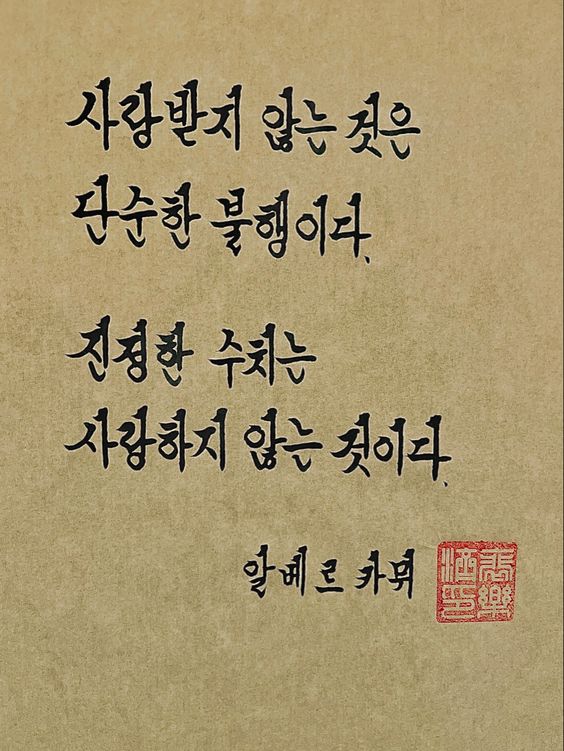 사랑받지 않는 것은
단순한 불행이다.
진정한 수치는
사랑하지 않는 것이다.
알베르 카뮈